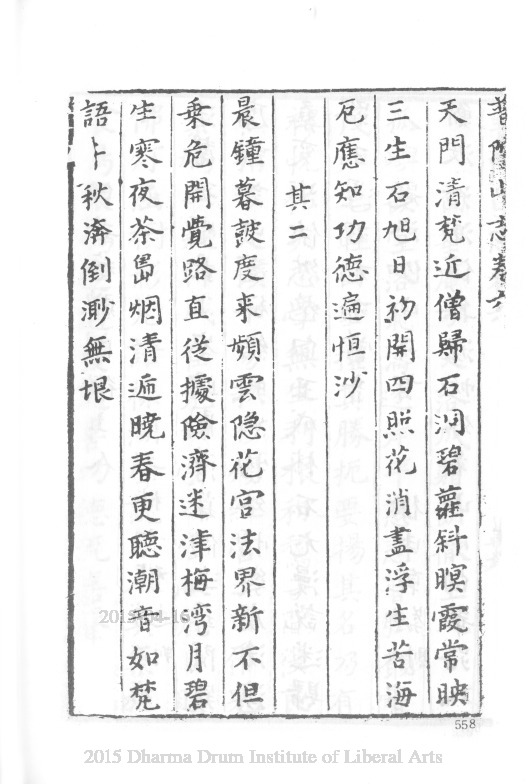 普陀山志卷六
天門清梵近僧歸石洞碧蘿斜暝霞常映
三生石旭日初開四照花消盡浮生苦海
厄應知功德遍恒沙
其二
晨鐘暮鼓度来頻雲隐花宮法界新不但
乗危開覺路直従據險濟迷津梅湾月碧
生寒夜茶嶴烟清逓曉春更聽潮音如梵
語卜秋濤倒渺無垠
558
2015-04-16
2015 Dharma Drum Institute of Liberal Arts